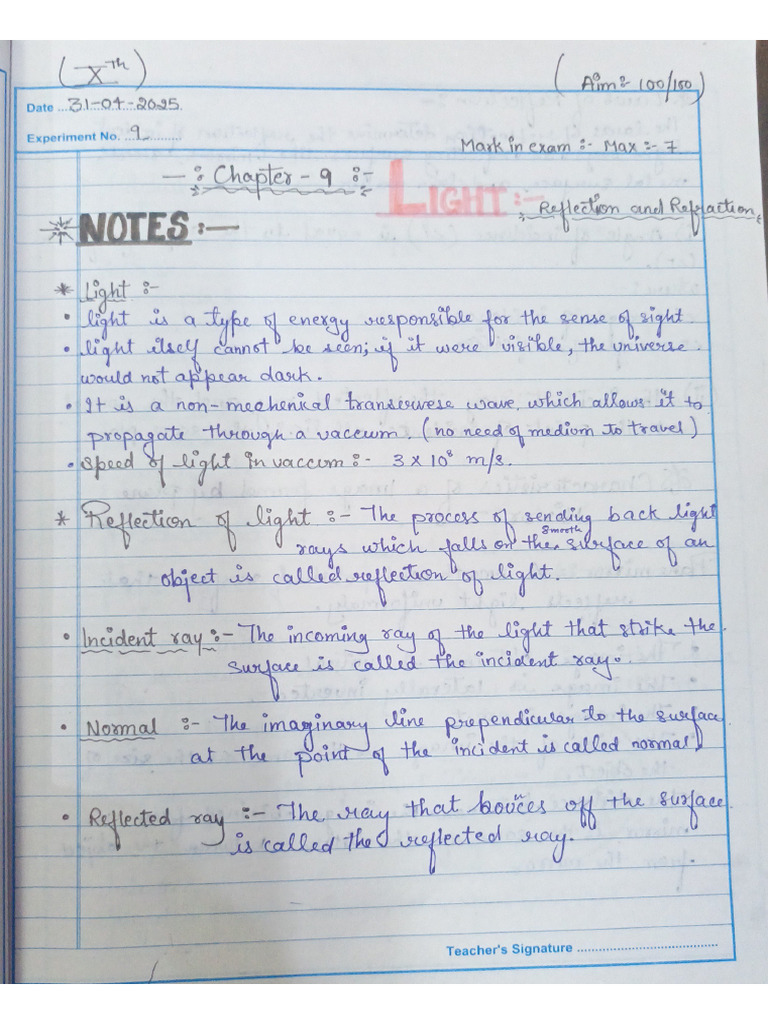 (Xth)
(Aim:- 100/100)
Date ...31-04-2025
Experiment No. ...9..........
Mark in exam :- Max :- 7
—: Chapter - 9 :-
LIGHT:-
Reflection and Refraction
NOTES:—
* Light :-
• light is a type of energy responsible for the sense of sight.
• light itself cannot be seen; if it were visible, the universe
would not appear dark.
• It is a non-mechenical transerwese wave, which allows it to
propagate through a vaccum. (no need of medium to travel)
• Speed of light in vaccum :- 3 x 10⁸ m/s.
* Reflection of light :- The process of sending back light
rays which falls on the smooth surface of an
object is called reflection of light.
• Incident ray :- The incoming ray of the light that strike the
surface is called the incident ray.
• Normal :- The imaginary line prependicular to the surface
at the point of the incident is called normal.
• Reflected ray :- The ray that bounces off the surface
is called the reflected ray.
Teacher's Signature ........................................